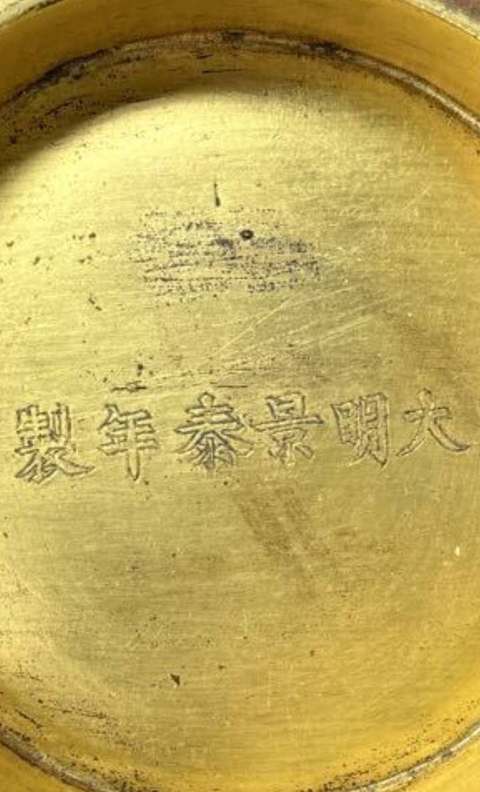 大明景泰年製